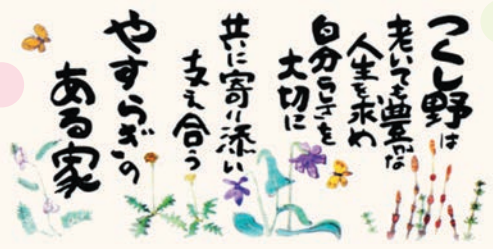 つくし野は
老いても豊かな
人生を求め
自分らしさを
大切に
共に寄り添い
支え合う
やすらぎの
ある家